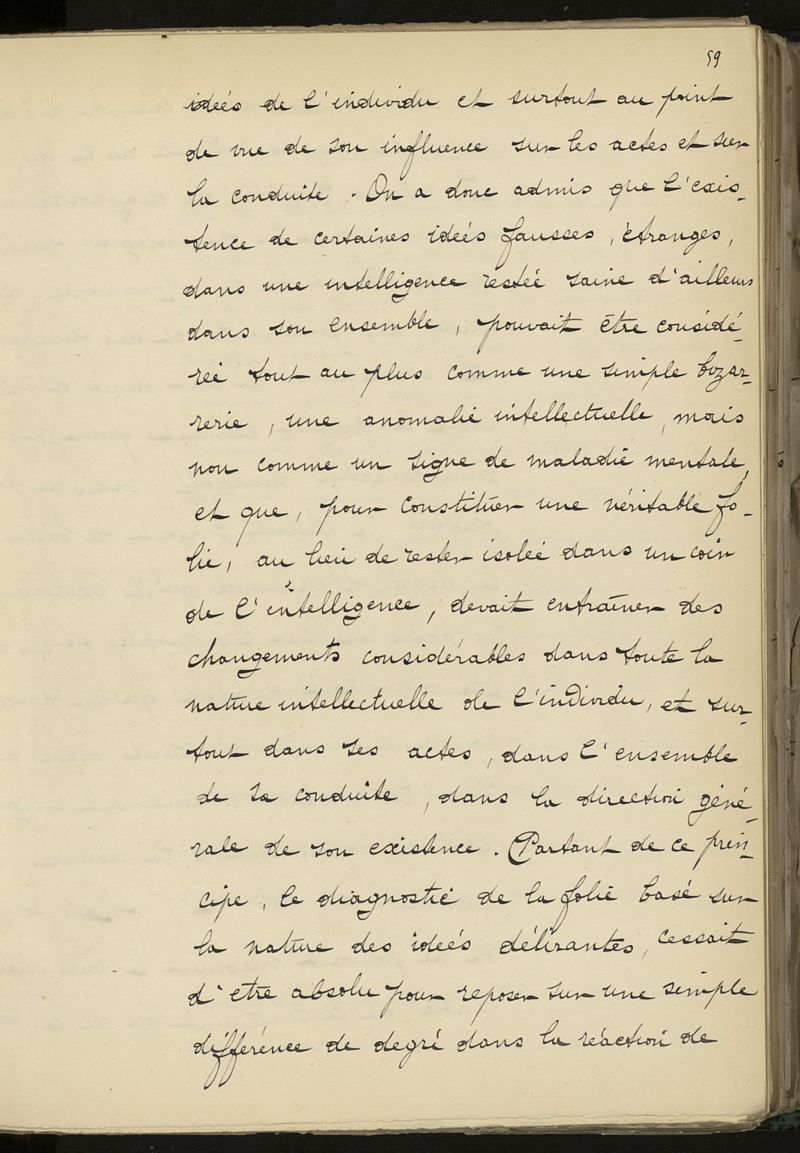 59
idées de l'individu et surtout au point
de vue de son influence sur les actes et sur
la conduite. On a donc admis que l'exis-
tence de certaines idées fausses, étranges,
dans une intelligence restée saine d'ailleurs
dans son ensemble, pouvait être considé-
rée tout au plus comme une simple bizar-
rerie, une anomalie intellectuelle, mais
non comme un signe de maladie mentale,
et que, pour constituer une véritable fo-
lie, au lieu de rester isolée dans un coin
de l'intelligence, devait entraîner des
changements considérables dans toute la
nature intellectuelle de l'individu, et sur-
tout dans ses actes, dans l'ensemble
de sa conduite, dans la direction géné-
rale de son existence. Partant de ce prin-
cipe, le diagnostic de la folie basé sur
la nature des idées délirantes, cessait
d'etre absolu pour reposer sur une simple
différence de degré dans la réaction de